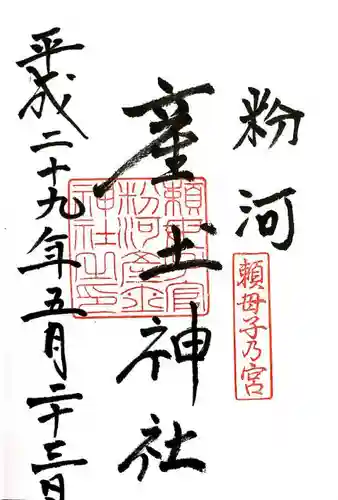 粉河
頼母子乃宮
産土神社
頼母子宮
粉河産土
神社之印
平成二十九年五月二十三日